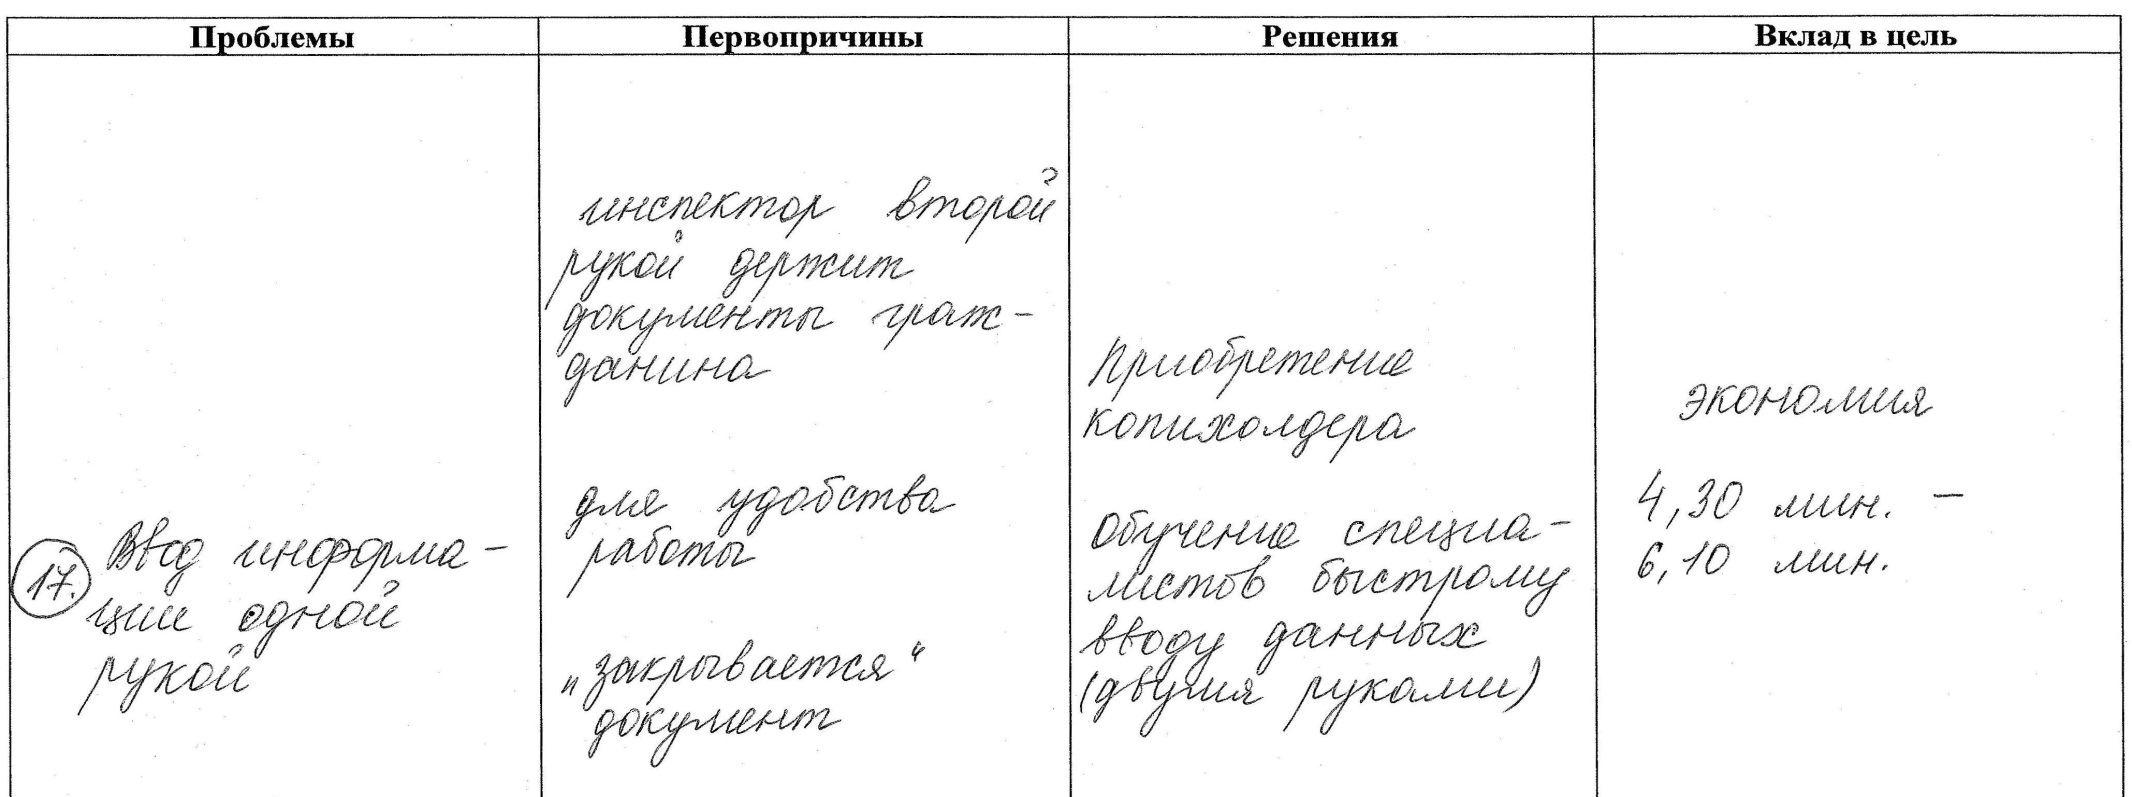 Проблемы
Первопричины
Решения
Вклад в цель
17. Ввод информа-
ции одной
рукой
инспектор второй
рукой держит
документы граж-
данина
для удобства
работы
„закрывается“
документ
Приобретение
копихолдера
Обучение специа-
листов быстрому
вводу данных
(двумя руками)
экономия
4,30 мин. –
6,10 мин.